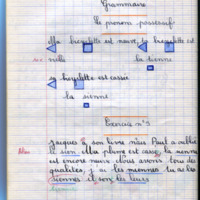 Grammaire
Le pronom possessif
Ma bicyclette est neuve, ta bicyclette est
vieille la tienne
sa bicyclette est cassée
la sienne
Exercice n°3
Jacques a son livre nous Paul a oublié
le sien ma plume est cassé la mienne
est encore neuve nous avons tous des
qualités, j'ai les miennes tu as les
siennes il sont les leurs